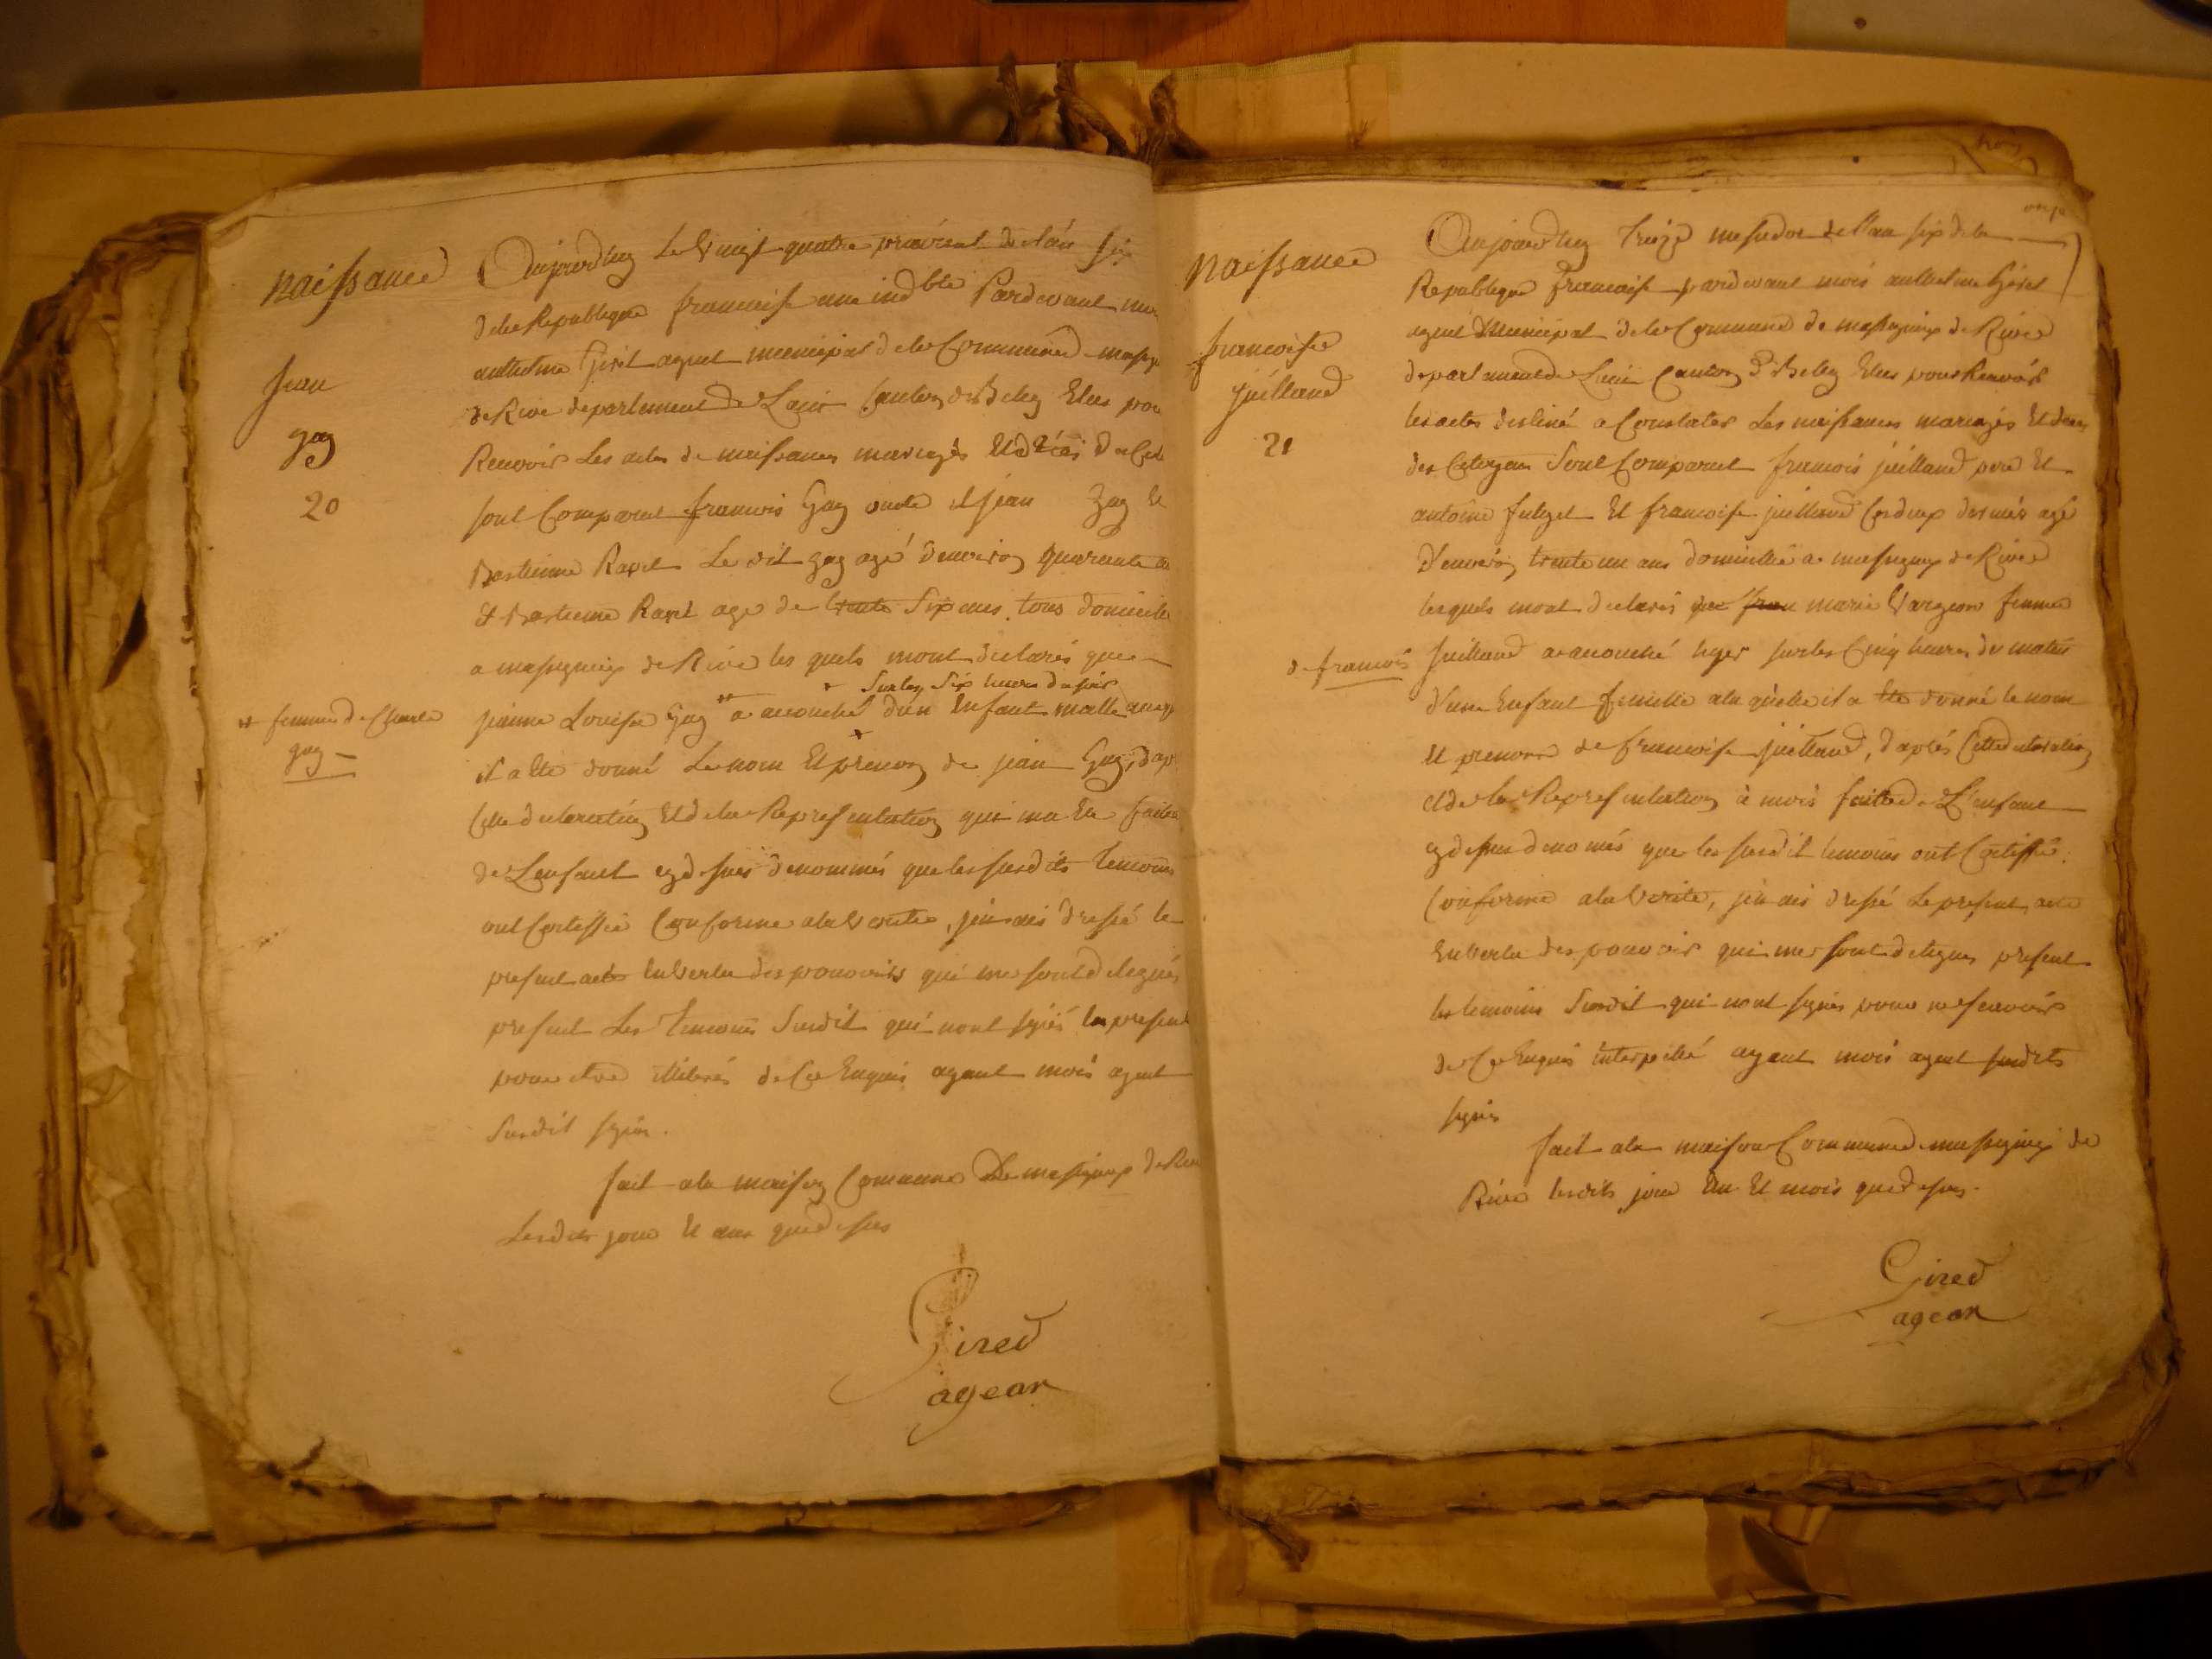 naissance
jean
gay
20
Aujourdhuy Le Vingt quatre prairial de lan six
dela Republique francaise une ind ble Pardevant
anthelme Giret agent municipal dela Commune
de Rive departement de Lain Canton de Beley Elus pour
Recevoir Les actes de naissances mariages Et décés
sont Comparut francois Gay oncle et jean gay Et
Bastienne Rapet Le dit gay agé denviron quarante
Et Bastienne Rapet age de trente Six ans tous domicilié
a massignieu de Rive les quels mont declarés que
+ Surles Six heures du soir
jeanne Louise Gay ** a acouché d'un Enfant malle
** femme de Charle
gay
il a Ete donné Le nom Et prenom de jean Gay, dap
Cette declaration Et dela Representation qui ma Ete faite
de Lenfant cy desus denommés que les susdits temoins
ont Certiffié Conforme ala Verité, jen ai dressé le
present acte En Vertu des pouvoirs qui me sont delegués
present Les temoins Susdit qui nont signés
pour etre illiterés de Ce Enquis ayant mois agent
Susdit signé.
fait ala maison Commune De massignieu de Rive
Lesdits jour Et ans que desus
Gired
agean
onze
naissance
francoise
juilland
21
Aujourdhuy treize messidor de l'an six dela
Republique francaise pardevant mois anthelme Giret
agent Municipal dela Commune de massignieu de Rive
departement de Lain Canton de Beley Elus pour Recevoir
les actes destiné a Constater Les naissances mariages Et deces
des Citoyens Sont Comparut francois juilland pere Et
antoine Et francoise juilland agé
d'environ trente un ans domicillié a massignieu de Rive
lesquels mont declarés que marie Vargeon femme
de francois
juilland a acouché hyer surles Cinq heures du matin
d'une Enfant femelle ala quelle il a Ete donné le nom
Et prenom de francoise juilland, d'aprés Cette declaration
et dela Representation à mois faitte de L'enfant
cy desus denomés que les susdit temoins ont Certiffié
Conforme ala Verite, jen ai dressé Le present acte
En Vertu des pouvoir qui me sont delegues present
les temoins Susdit qui nont signés pour ne scavoir
de Ce Enquis interpellé ayant mois agent susdits
signés
fait ala maison Commune massignieu de
Rive lesdits jour Et mois que desus.
Gired
agean